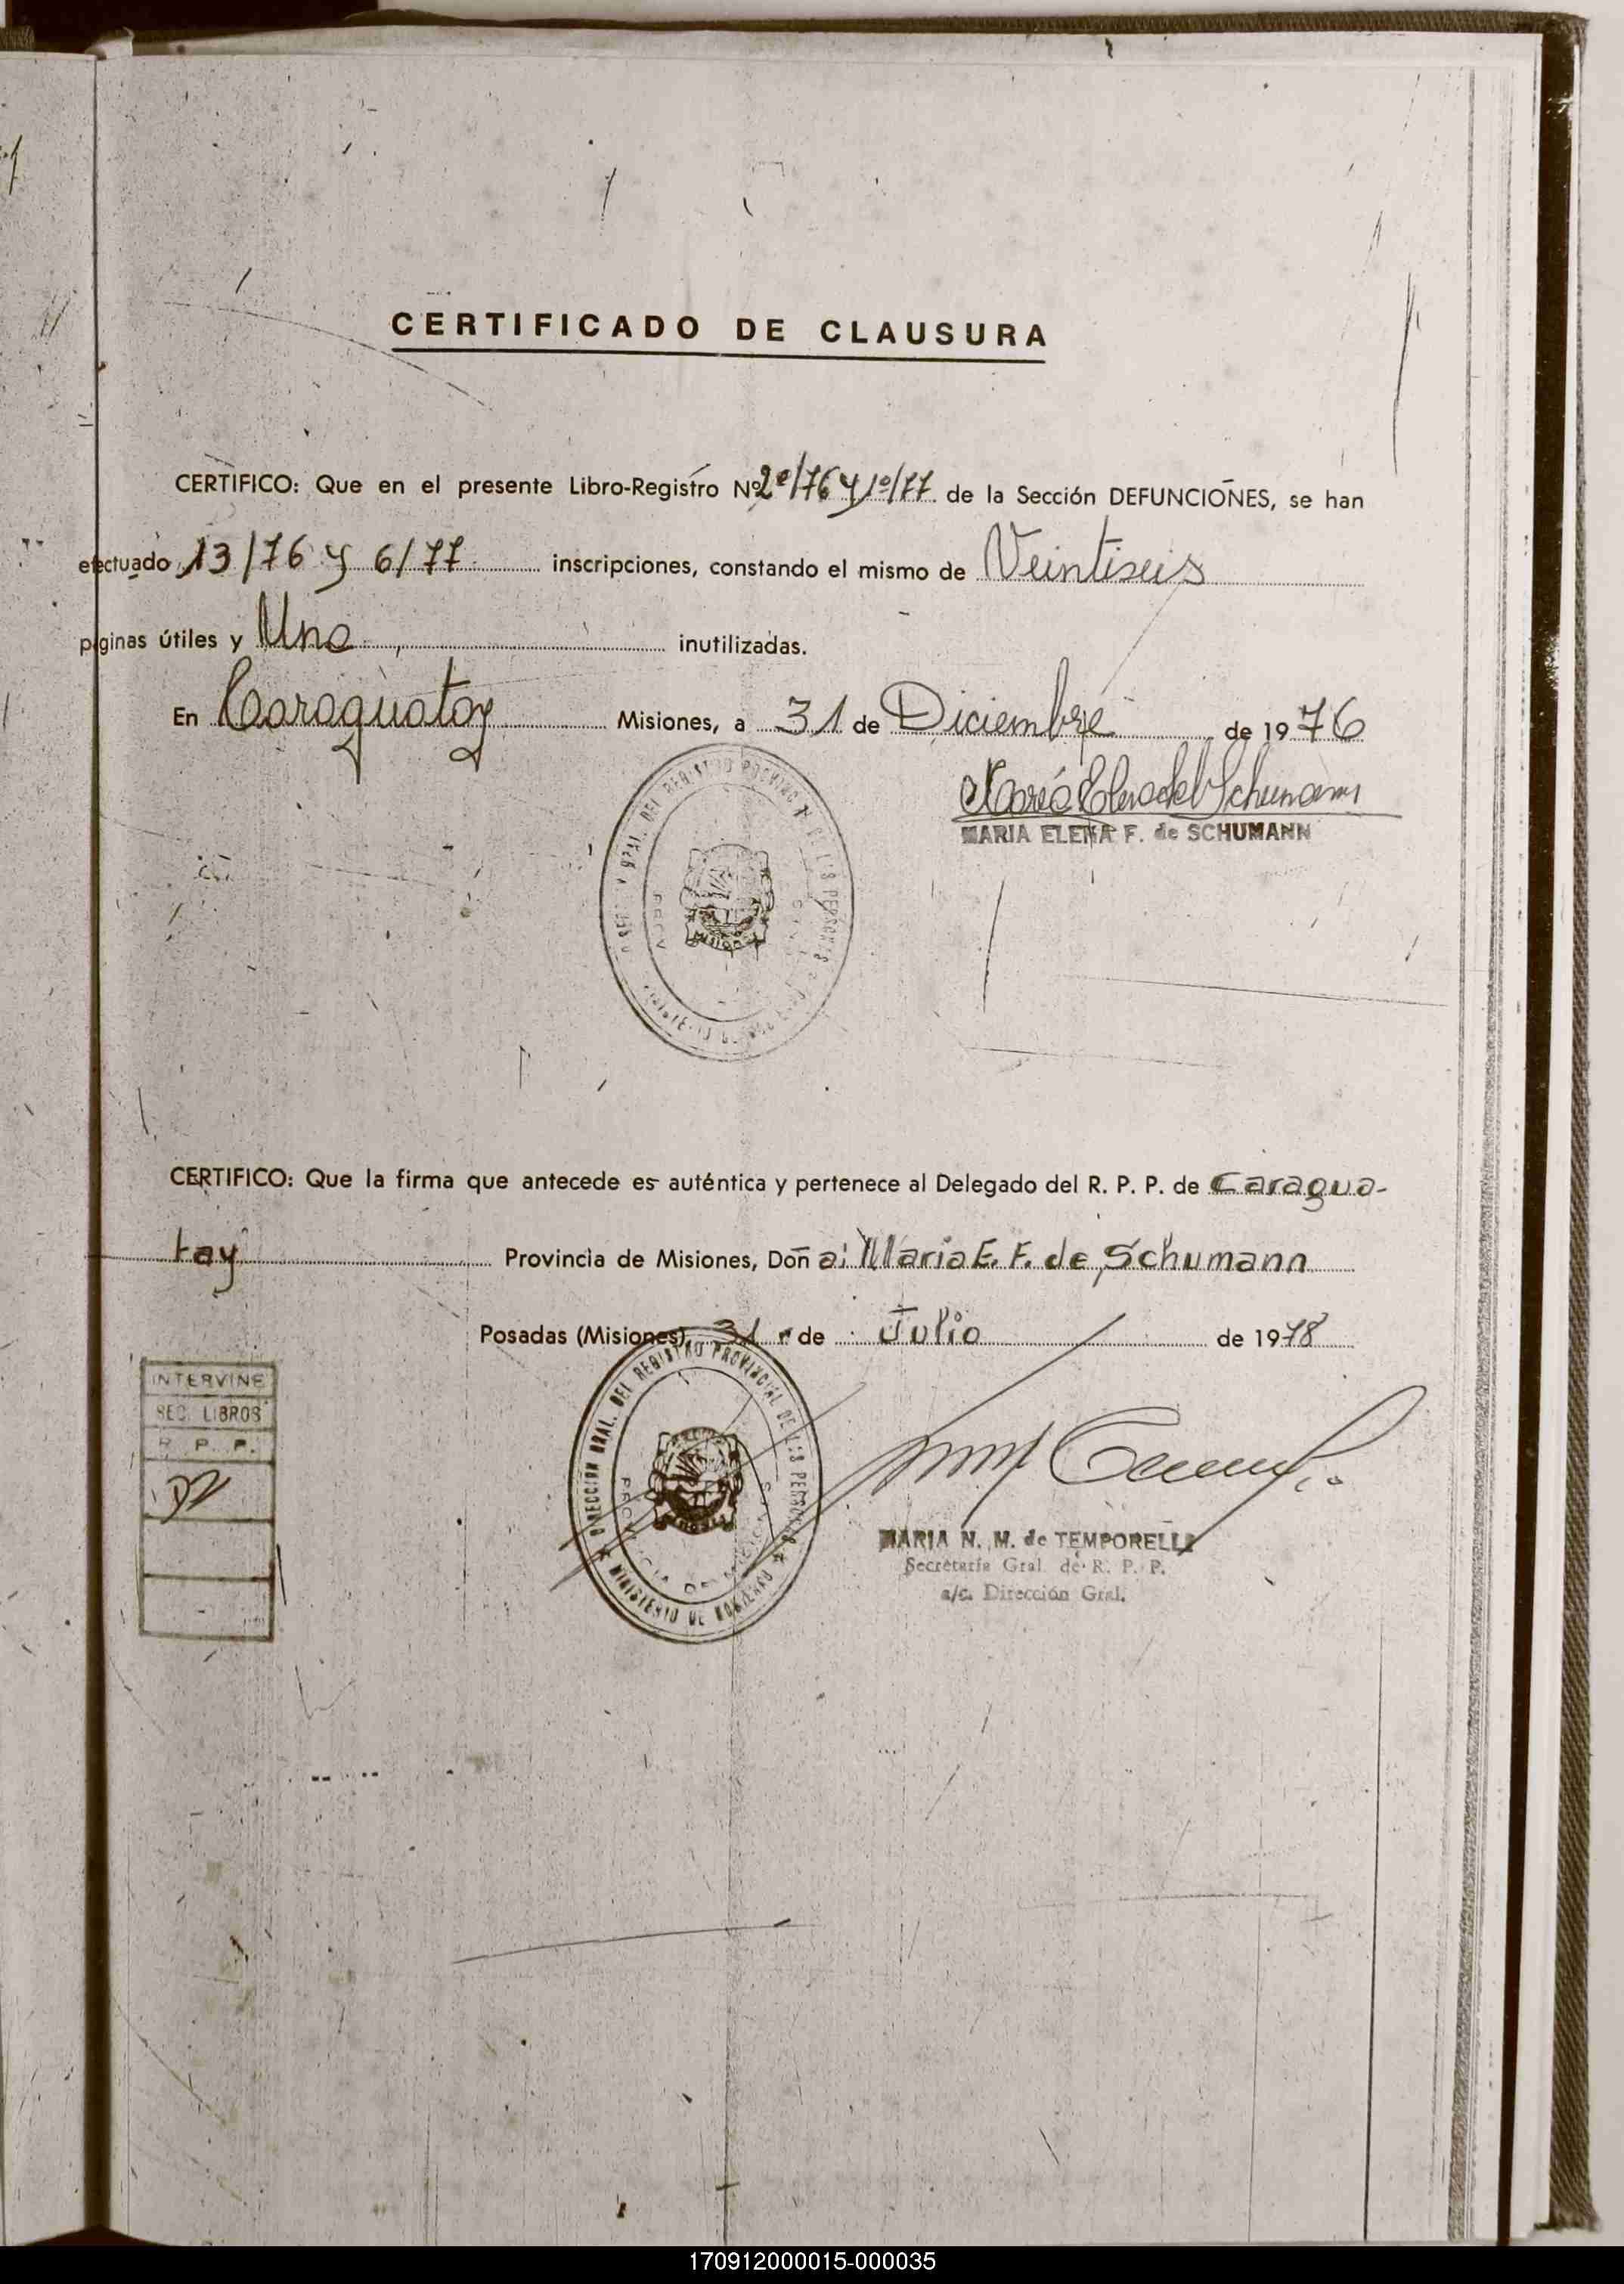 CERTIFICADO DE CLAUSURA
CERTIFICO: Que en el presente Libro-Registro Nº 2º/76 y 1º/77 de la Sección DEFUNCIONES, se han
efectuado 13/76 y 6/77 inscripciones, constando el mismo de Veintiseis
páginas útiles y Una inutilizadas.
En Caraguatay Misiones, a 31 de Diciembre de 1976
Maria Elena de Schumann
MARIA ELENA F. de SCHUMANN
MISIONES
CERTIFICO: Que la firma que antecede es auténtica y pertenece al Delegado del R. P. P. de Caragua-
tay Provincia de Misiones, Doña: Maria E. F. de Schumann
Posadas (Misiones), 31 de Julio de 1978
DIRECCION GRAL. DEL REGISTRO PROVINCIAL DE LAS PERSONAS
MINISTERIO DE GOBIERNO
INTERVINE
SEC. LIBROS
R. P. P.
MARIA N. M. de TEMPORELLI
Secretaria Gral. de R. P. P.
a/c. Dirección Gral.
170912000015-000035